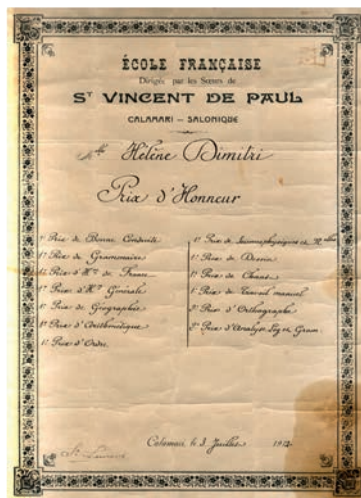 ÉCOLE FRANÇAISE
Dirigée par les Sœurs de
ST VINCENT DE PAUL
CALAMARI — SALONIQUE
Mlle Hélène Dimitri
Prix d'Honneur
1er Prix de Bonne Conduite
1er Prix de Grammaire
Prix d'Hre de France
1er Prix d'Hre Générale
1er Prix de Géographie
1er Prix d'Arithmétique
1er Prix d'Ordre
1er Prix de Sciences physiques et
1er Prix de Dessin
1er Prix de Chant
1er Prix de Travail manuel
Prix d'Orthographe
Prix d'Analyse Log. et Gram.
Calamari, le 3 Juillet